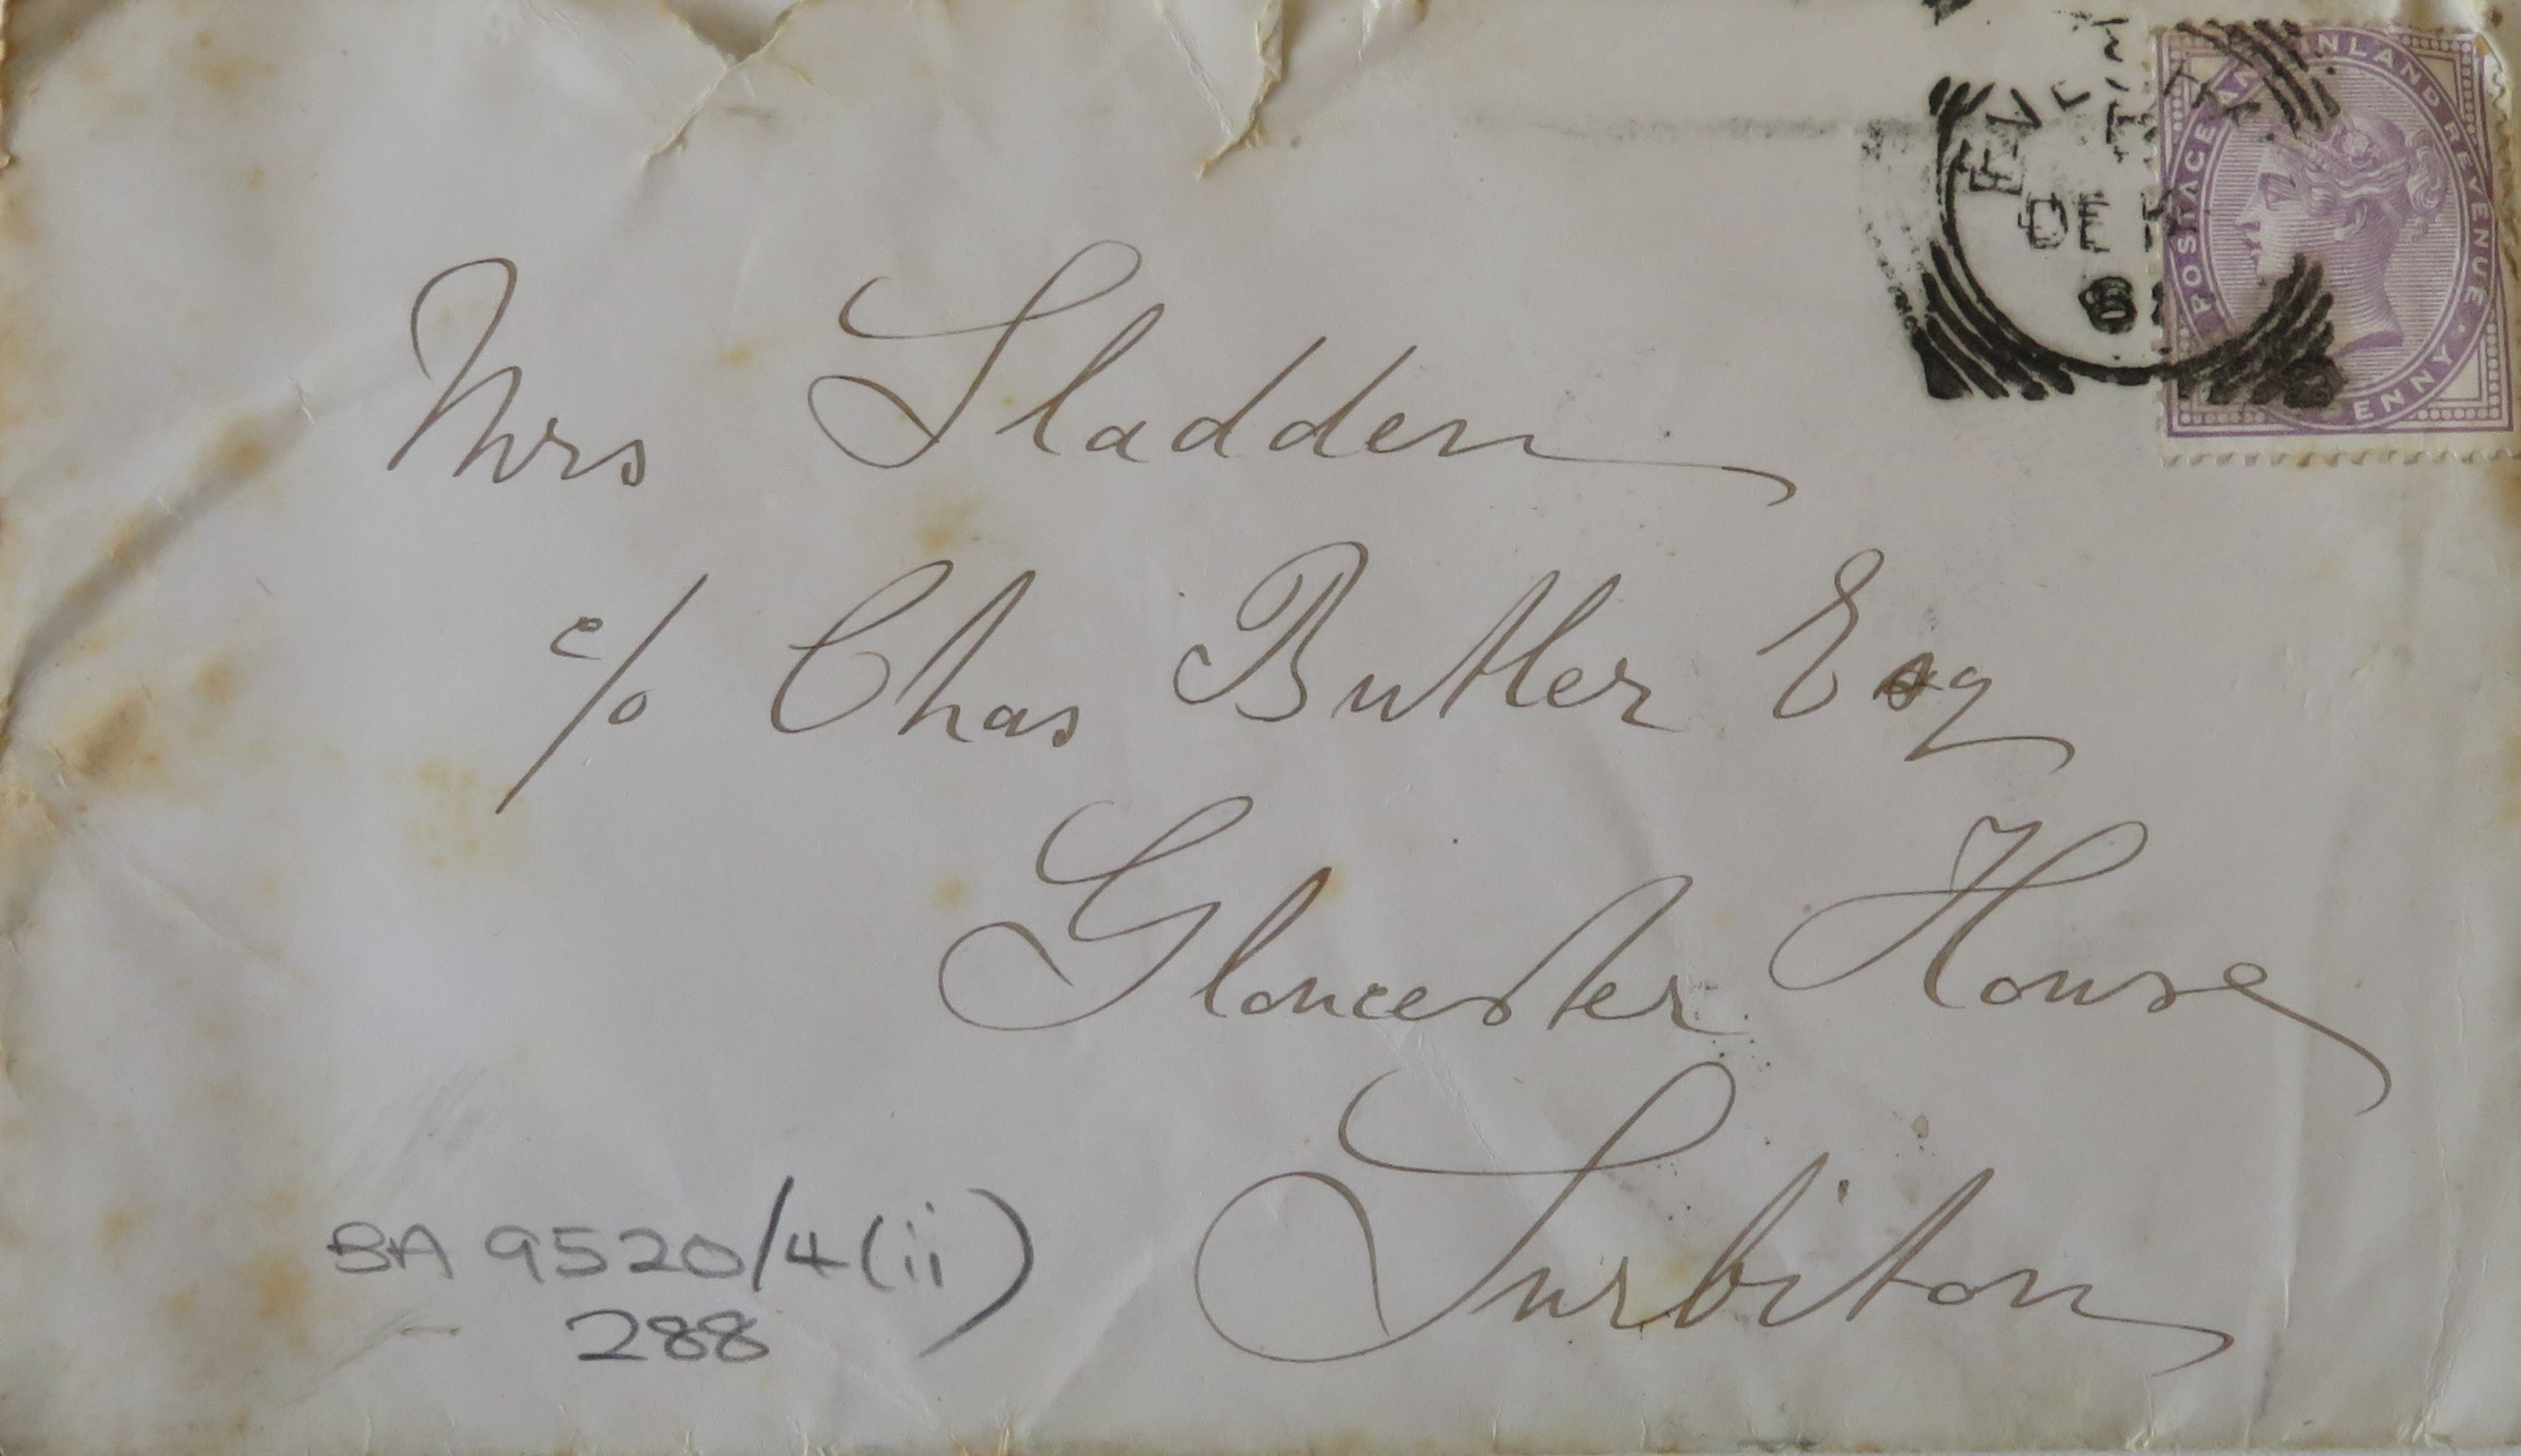 POSTAGE AND INLAND REVENUE
PENNY
DE
Mrs Sladden
c/o Chas Butler Esq
Gloucester House
Surbiton
BA 9520/4(ii)
288